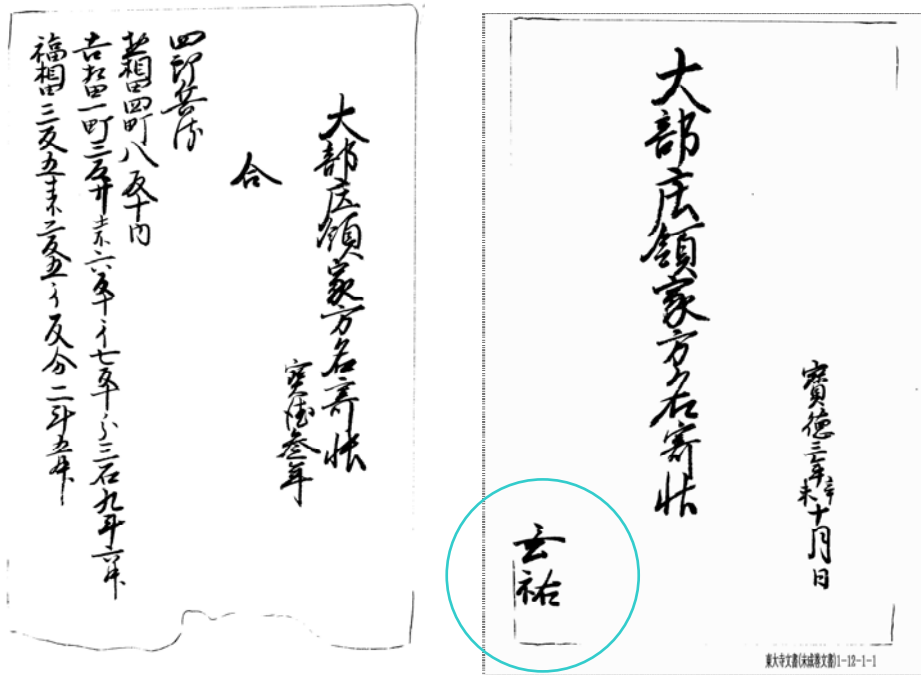 寶徳三年辛未十月日
大部庄領家方名寄帳
玄祐
東大寺文書(未成巻文書)1-12-1-1
大部庄領家方名寄帳
寳徳叁年
合
四郎兵衛
相田四町八反十内
田一町三反廿 六 七 三石九斗六升
福相田三反五 二反五 反分二斗五升